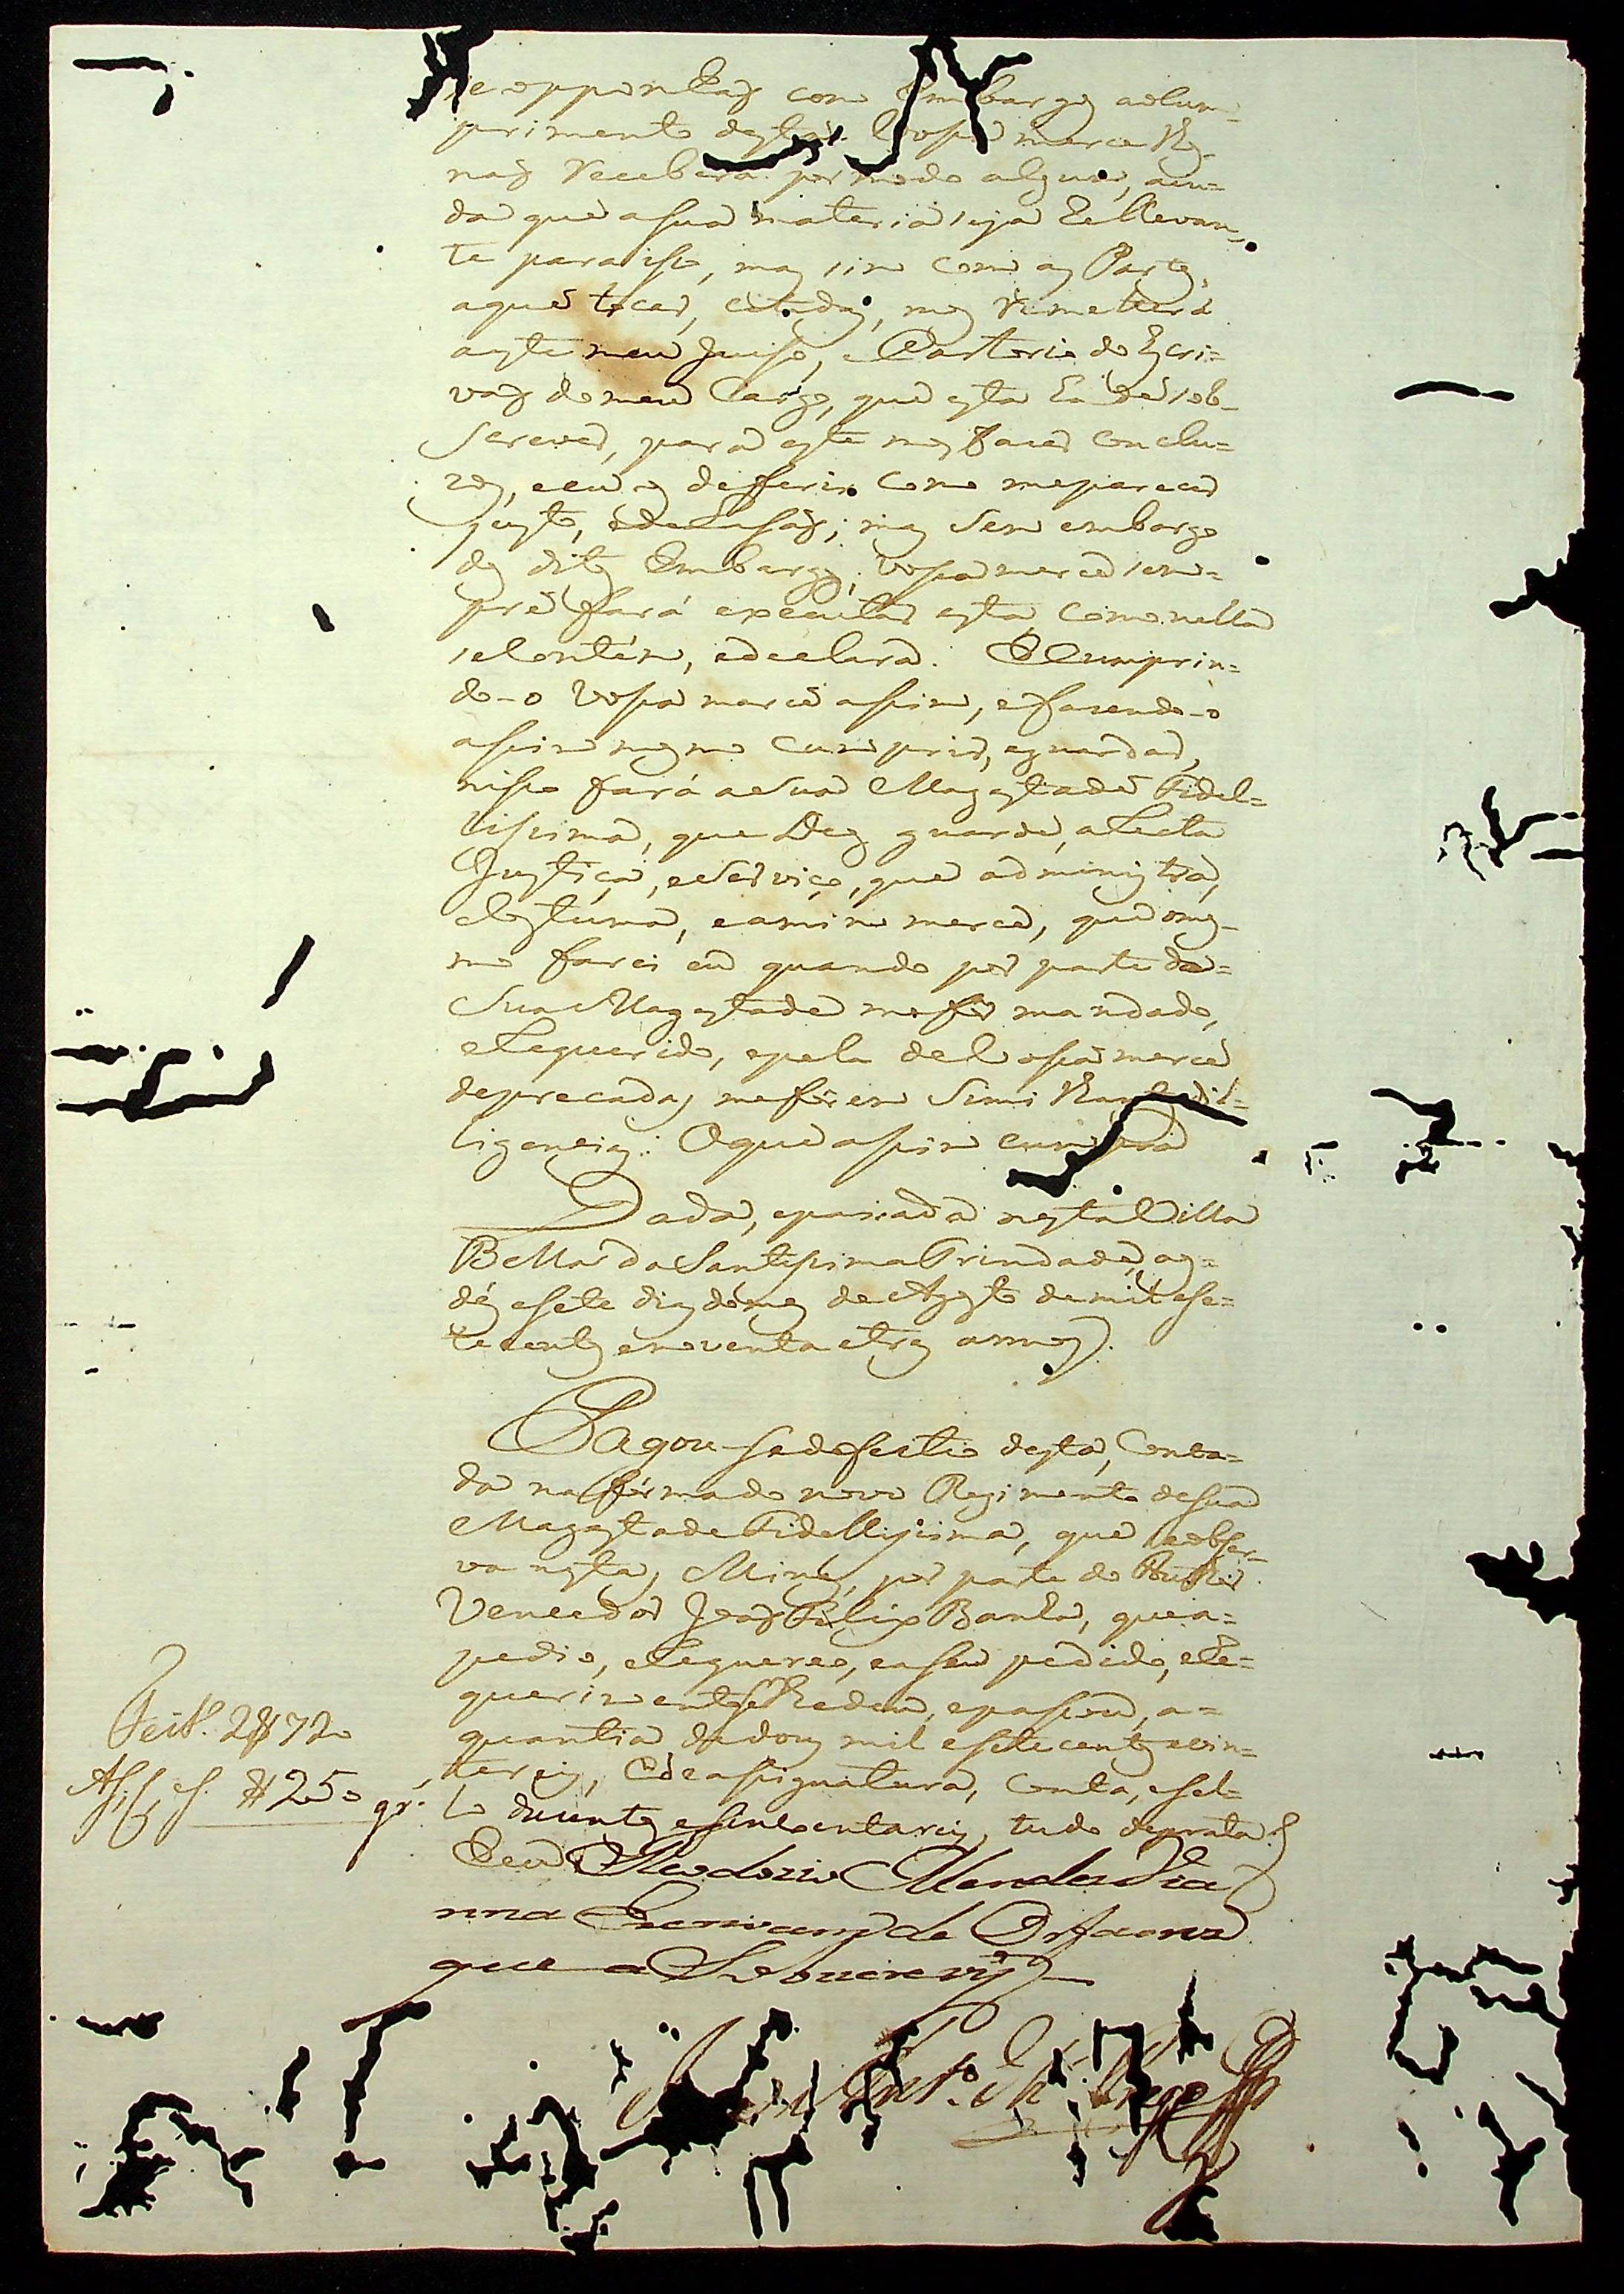 se opponhaõ com Embargos aoCum=
primento desta: Vossa merce lhes
naõ Receberá por modo algum, ain=
da que asua materia seja Rellevan=
te para isso, mas sim com as Partes,
aquem tocar, citadas, mos Remetterá
aeste meu Juiso, e Cartorio do Escri=
vaõ domeu Cargo, que esta ha de sob=
screver, para este mos fazer conclu=
zos, eeu os defferir como meparecer
justo, ede Rasaõ; mas Sem embargo
dos ditos Embargos, Vossa merce sem=
pre fará executar esta, como nella
seContém, edeclara. E Cumprin=
do-o Vossa merce assim, efazendo-o
assim mesmo cumprir, eguardar,
nisso fará aSua Magestade Fidel=
lissima, que Deos guarde, aRecta
Justiça, eServiço, que administra,
eCostuma, eamim merce, que omes=
mo farei eu quando por parte de=
Sua Magestade mefor mandado,
eRequerido, epela deVossa merce
deprecada, meforem Similhantes di=
ligencias: Oque assim cumprirá
Dada, epassada nesta Villa
Bella da Santissima Trindade, aos=
dés esete dias domes de Agosto demil ese=
tecentos enoventa etres annos.
Pagou-se dofeitio desta, Conta=
da naforma do novo Regimento desua
Magestade Fidellissima, que seobser=
va nestas Minas, por parte do
Vencedor Joaõ Felix Banha, que a=
pedio, eRequereo, easeu pedido, eRe=
querimento selhe deu, epassou, a=
quantia dedous mil esetecentos evin=
tereis, Ede assignatura, Conta, esel=
lo duzentos esincoentareis, tudo deprata.
E eu Theodozio Mendes Via
nna Escrivam de Orfaons
que a Sobscrevy
Feit.º 2$720
$250